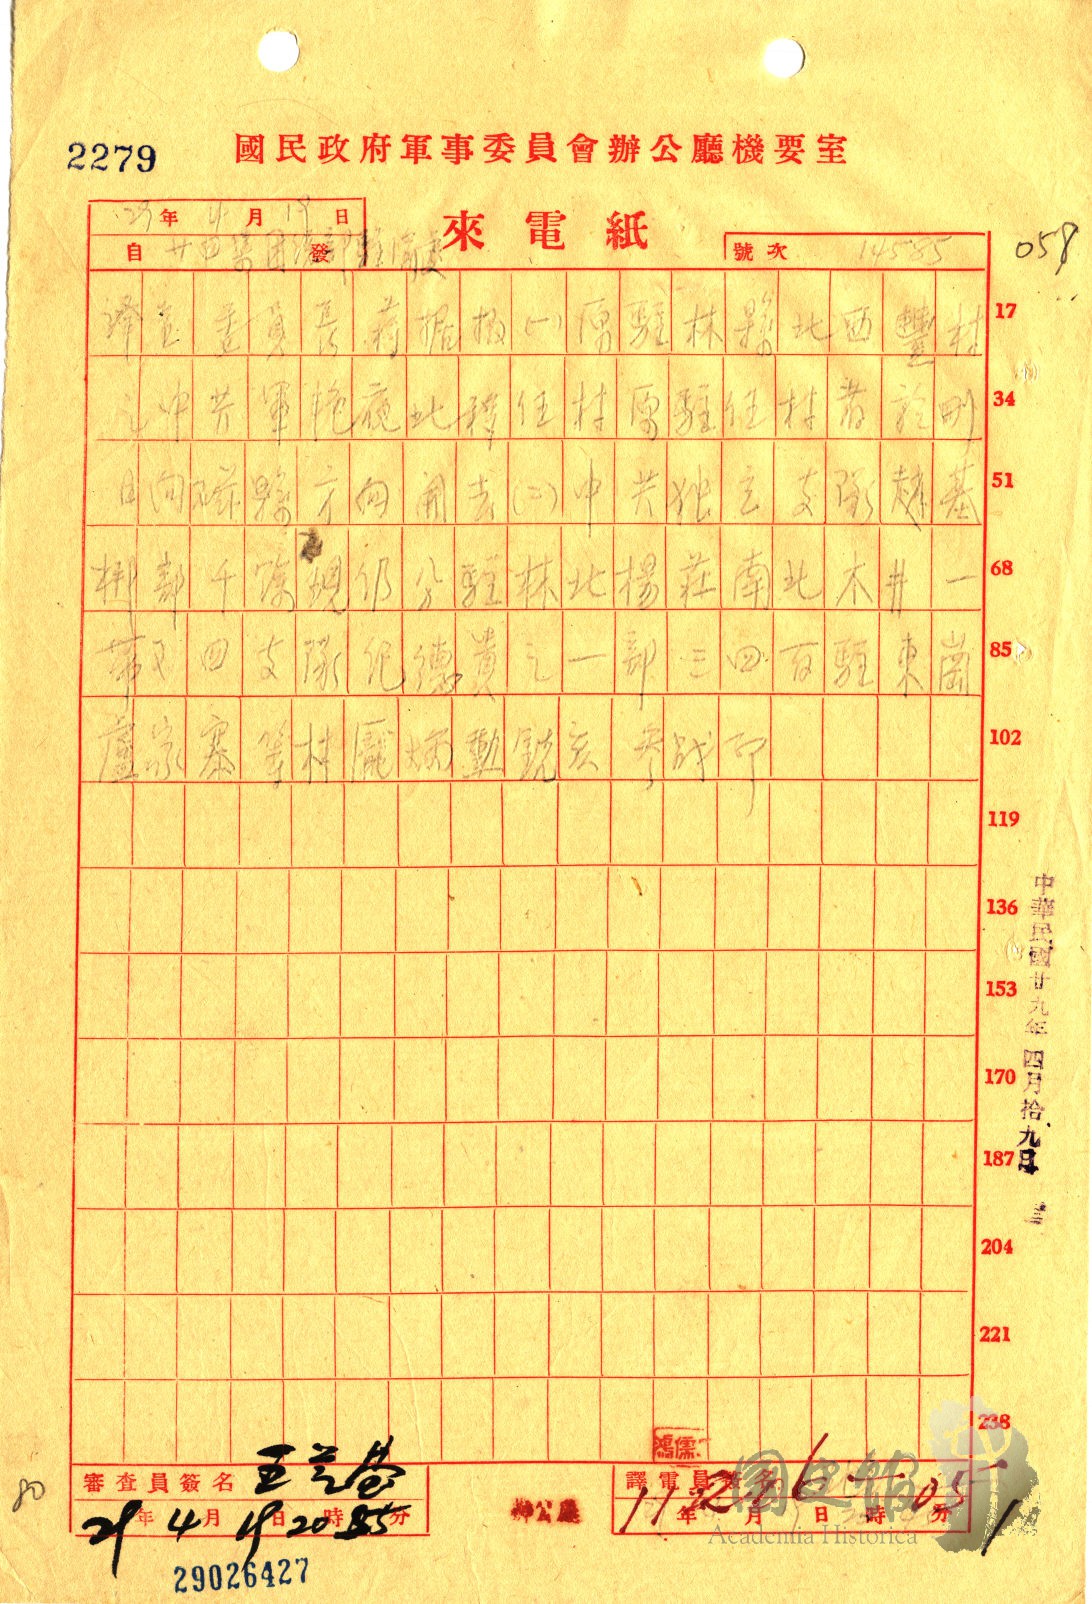 2279
國民政府軍事委員會辦公廳機要室
29年4月19日
來電紙
自廿四集團 發
號次 14585
058
委員長蔣據報(一)原駐林縣北西豐村 17
之中共軍艳夜北移任村原駐任村者於刪 34
日向磁縣方向開去(二)中共独立支隊趙基 51
部千餘現仍分駐林北楊莊南北木井一 68
帶又四支隊紀德貴之一部三四百駐東崗 85
盧家寨等村龐炳勳銑亥參战印 102
119
136
153
170
187
204
221
238
中華民國廿九年四月拾九日
審查員簽名
29年4月19日20時55分
譯電員簽名
年 月 日 時 05分
辦公廳
80
29026427
國史館
Academia Historica